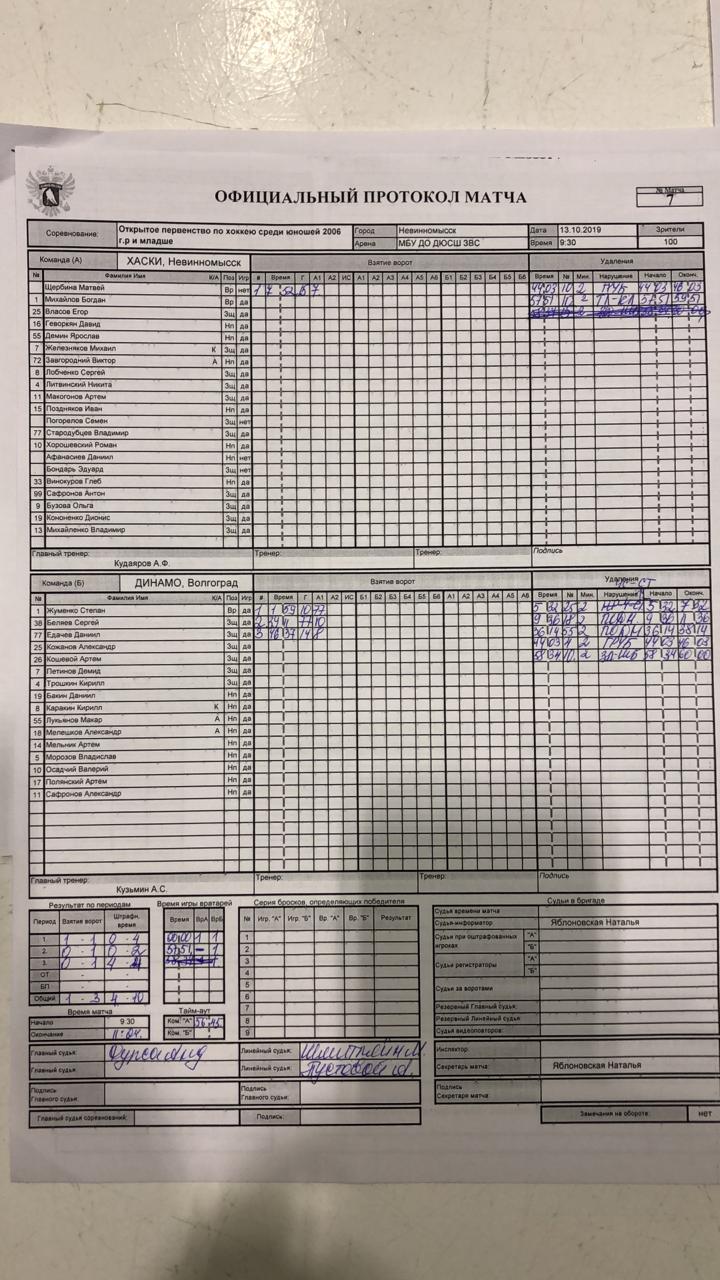 ОФИЦИАЛЬНЫЙ ПРОТОКОЛ МАТЧА
№ Матча
7
Соревнование: Открытое первенство по хоккею среди юношей 2006 г.р и младше Город Невинномысск Дата 13.10.2019 Зрители
Арена МБУ ДО ДЮСШ ЗВС Время 9:30 100
Команда (А) ХАСКИ, Невинномысск Взятие ворот Удаления
№ Фамилия Имя К/А Поз Игр # Время Г А1 А2 ИС А1 А2 А3 А4 А5 А6 Б1 Б2 Б3 Б4 Б5 Б6 Время № Мин. Нарушение Начало Оконч.
Щербина Матвей Вр нет 1 7 52 67 44 03 10 2 ГРУБ 44 03 46 03
1 Михайлов Богдан Вр да 57 51 10 2 57 51 59 51
25 Власов Егор Зщ да
16 Геворкян Давид Нп да
55 Демин Ярослав Нп да
7 Железняков Михаил К Зщ да
72 Завгородний Виктор А Нп да
8 Лобченко Сергей Зщ да
4 Литвинский Никита Зщ да
11 Макогонов Артем Зщ да
15 Поздняков Иван Нп да
Погорелов Семен Зщ нет
77 Стародубцев Владимир Зщ да
10 Хорошевский Роман Нп да
Афанасиев Даниил Нп нет
Бондарь Эдуард Зщ нет
33 Винокуров Глеб Нп да
99 Сафронов Антон Зщ да
9 Бузова Ольга Зщ да
19 Кононенко Дионис Зщ да
13 Михайленко Владимир Зщ да
Главный тренер: Тренер: Тренер: Подпись
Кудаяров А.Ф.
Команда (Б) ДИНАМО, Волгоград Взятие ворот Удаления
№ Фамилия Имя К/А Поз Игр # Время Г А1 А2 ИС Б1 Б2 Б3 Б4 Б5 Б6 А1 А2 А3 А4 А5 А6 Время № Мин. Нарушение Начало Оконч.
1 Жуменко Степан Вр да 1 1 59 10 77 5 32 25 2 5 32 7 32
38 Беляев Сергей Зщ да 2 77 10 9 36 18 2 9 36 11 36
77 Едачев Даниил Зщ да 3 46 37 14 8 36 14 55 2 36 14 38 14
25 Кожанов Александр Зщ да 44 03 4 2 ГРУБ 44 03 46 03
26 Кошевой Артем Зщ да 58 34 10 2 58 34 60 00
7 Петинов Демид Зщ да
4 Трошкин Кирилл Зщ да
19 Бакин Даниил Нп да
8 Каракин Кирилл К Нп да
55 Лукьянов Макар А Нп да
18 Мелешков Александр А Нп да
14 Мельник Артем Нп да
5 Морозов Владислав Нп да
10 Осадчий Валерий Нп да
17 Полянский Артем Нп да
11 Сафронов Александр Нп да
Главный тренер: Тренер: Тренер: Подпись
Кузьмин А.С.
Результат по периодам Время игры вратарей Серия бросков, определяющих победителя Судьи в бригаде
Период Взятие ворот Штрафн. время Время ВрА ВрБ № Игр. "А" Игр. "Б" Вр. "А" Вр. "Б" Результат Судья времени матча
Судья-информатор Яблоновская Наталья
1. 1 - 1 0 - 4 00 00 1 1 1 Судьи при оштрафованных игроках "А"
2. 0 - 1 0 - 2 57 51 - 1 2 "Б"
3. 0 - 1 4 - 4 3 Судьи регистраторы "А"
ОТ - - 4 "Б"
БП - - 5 Судьи за воротами
Общий 1 - 3 4 - 10 6
Время матча Тайм-аут 7 Резервный Главный судья:
Начало 9 30 Ком. "А" 56 45 8 Резервный Линейный судья:
Окончание 11:04 Ком. "Б" 9 Судьи видеоповторов:
Главный судья: Линейный судья: Инспектор:
Главный судья: Линейный судья: Пустовой Секретарь матча: Яблоновская Наталья
Подпись Главного судьи: Подпись Главного судьи: Подпись Секретаря матча:
Главный судья соревнований: Подпись: Замечания на обороте: нет